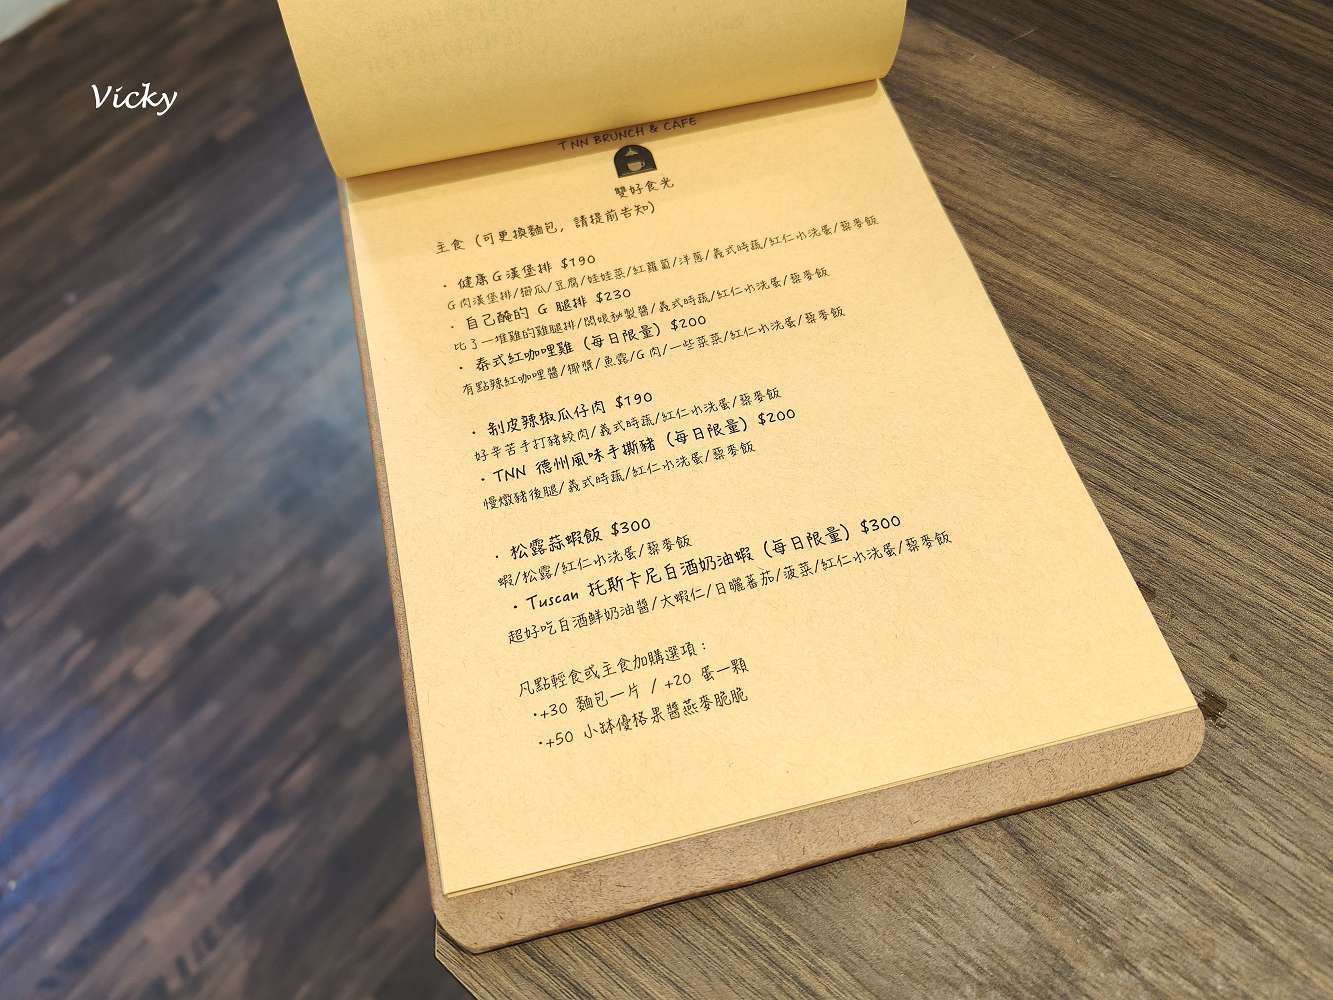 Vicky
TNN BRUNCH & CAFE
雙好食光
主食 (可更換麵包, 請提前告知)
· 健康G漢堡排 $190
G肉漢堡排/櫛瓜/豆腐/娃娃菜/紅蘿蔔/洋蔥/義式時蔬/紅仁水洗蛋/藜麥飯
· 自己醃的 G 腿排 $230
比了一堆雞的雞腿排/闆娘祕製醬/義式時蔬/紅仁水洗蛋/藜麥飯
· 泰式紅咖哩雞 (每日限量) $200
有點辣紅咖哩醬/椰漿/魚露/G肉/一些菜菜/紅仁水洗蛋/藜麥飯
· 剝皮辣椒瓜仔肉 $190
好辛苦手打豬絞肉/義式時蔬/紅仁水洗蛋/藜麥飯
· TNN 德州風味手撕豬 (每日限量) $200
慢燉豬後腿/義式時蔬/紅仁水洗蛋/藜麥飯
· 松露蒜蝦飯 $300
蝦/松露/紅仁水洗蛋/藜麥飯
· Tuscan 托斯卡尼白酒奶油蝦 (每日限量) $300
超好吃白酒鮮奶油醬/大蝦仁/日曬蕃茄/菠菜/紅仁水洗蛋/藜麥飯
凡點輕食或主食加購選項：
·+30 麵包一片 / +20 蛋一顆
·+50 小缽優格果醬燕麥脆脆